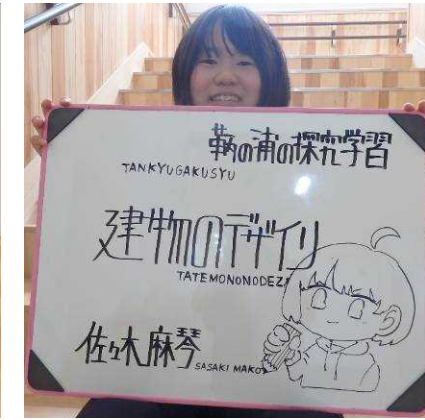 鞆の浦の探究学習
TANKYUGAKUSYU
建物のデザイン
TATEMONONODEZA
佐々木麻琴
SASAKI MAKOT